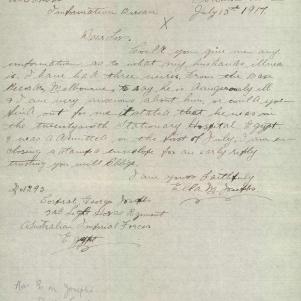 Information Bureau
July 13th 1917
Dear Sir.
Could you give me any
information as to what my husbands illness
is. I have had three wires from the Base
Records Melbourne to say he is dangerously ill
& I am very anxious about him, or could you
find out for me it stated that he was in
the twenty Stationary Hospital Egypt
& was admitted the first of July. I am en
closing a stamp envelope for an early reply
trusting you will oblige.
I am yours faithfully
Ella M Josephs
No 1293
Corporal George Josephs
2nd Light Horse Regiment
Australian Imperial Forces
Egypt